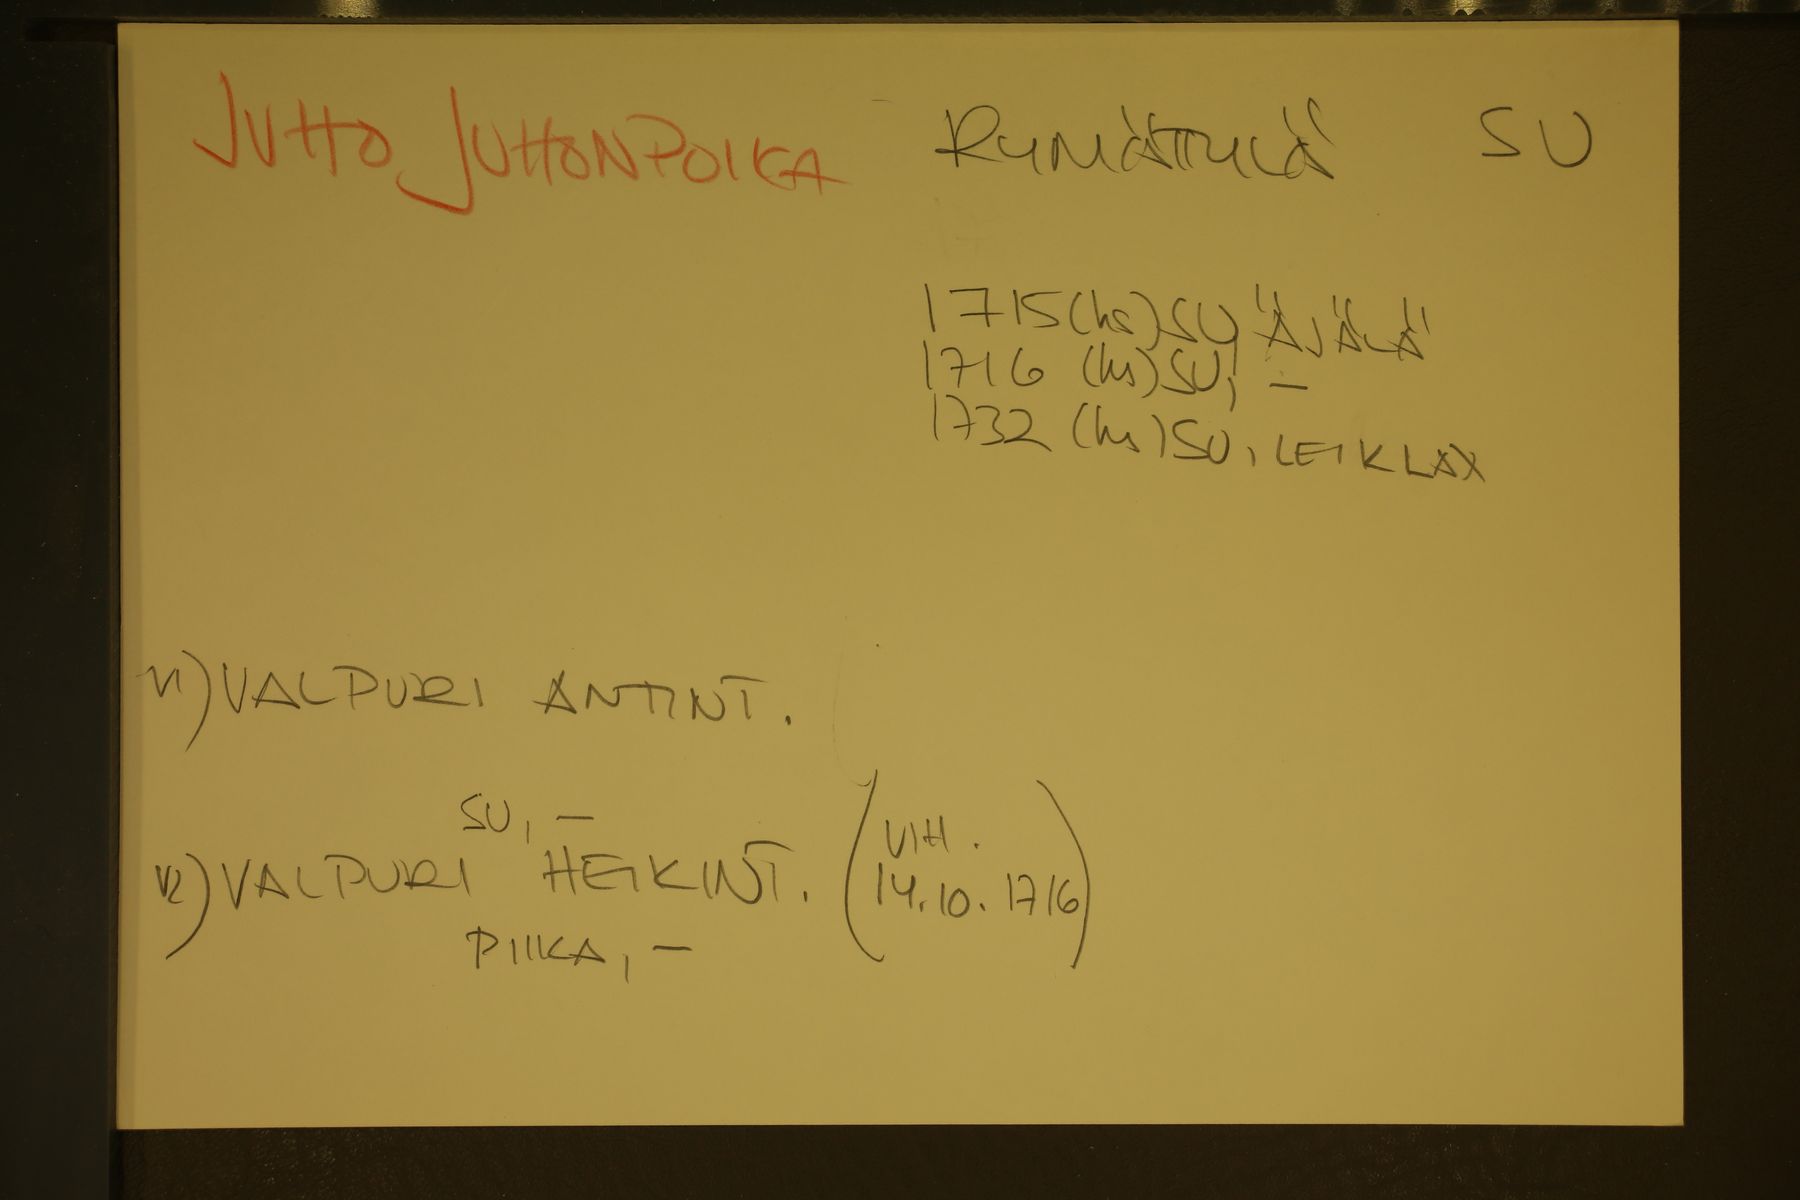 JUHO JUHONPOIKA RYMÄTTYLÄ SU
1715 (hs) SU, "ÄJÄLÄ"
1716 (hs) SU, –
1732 (hs) SU, LEIKLAX
V1) VALPURI ANTINT.
SU, –
V2) VALPURI HEIKINT. (VIH. 14.10.1716)
PIIKA, –